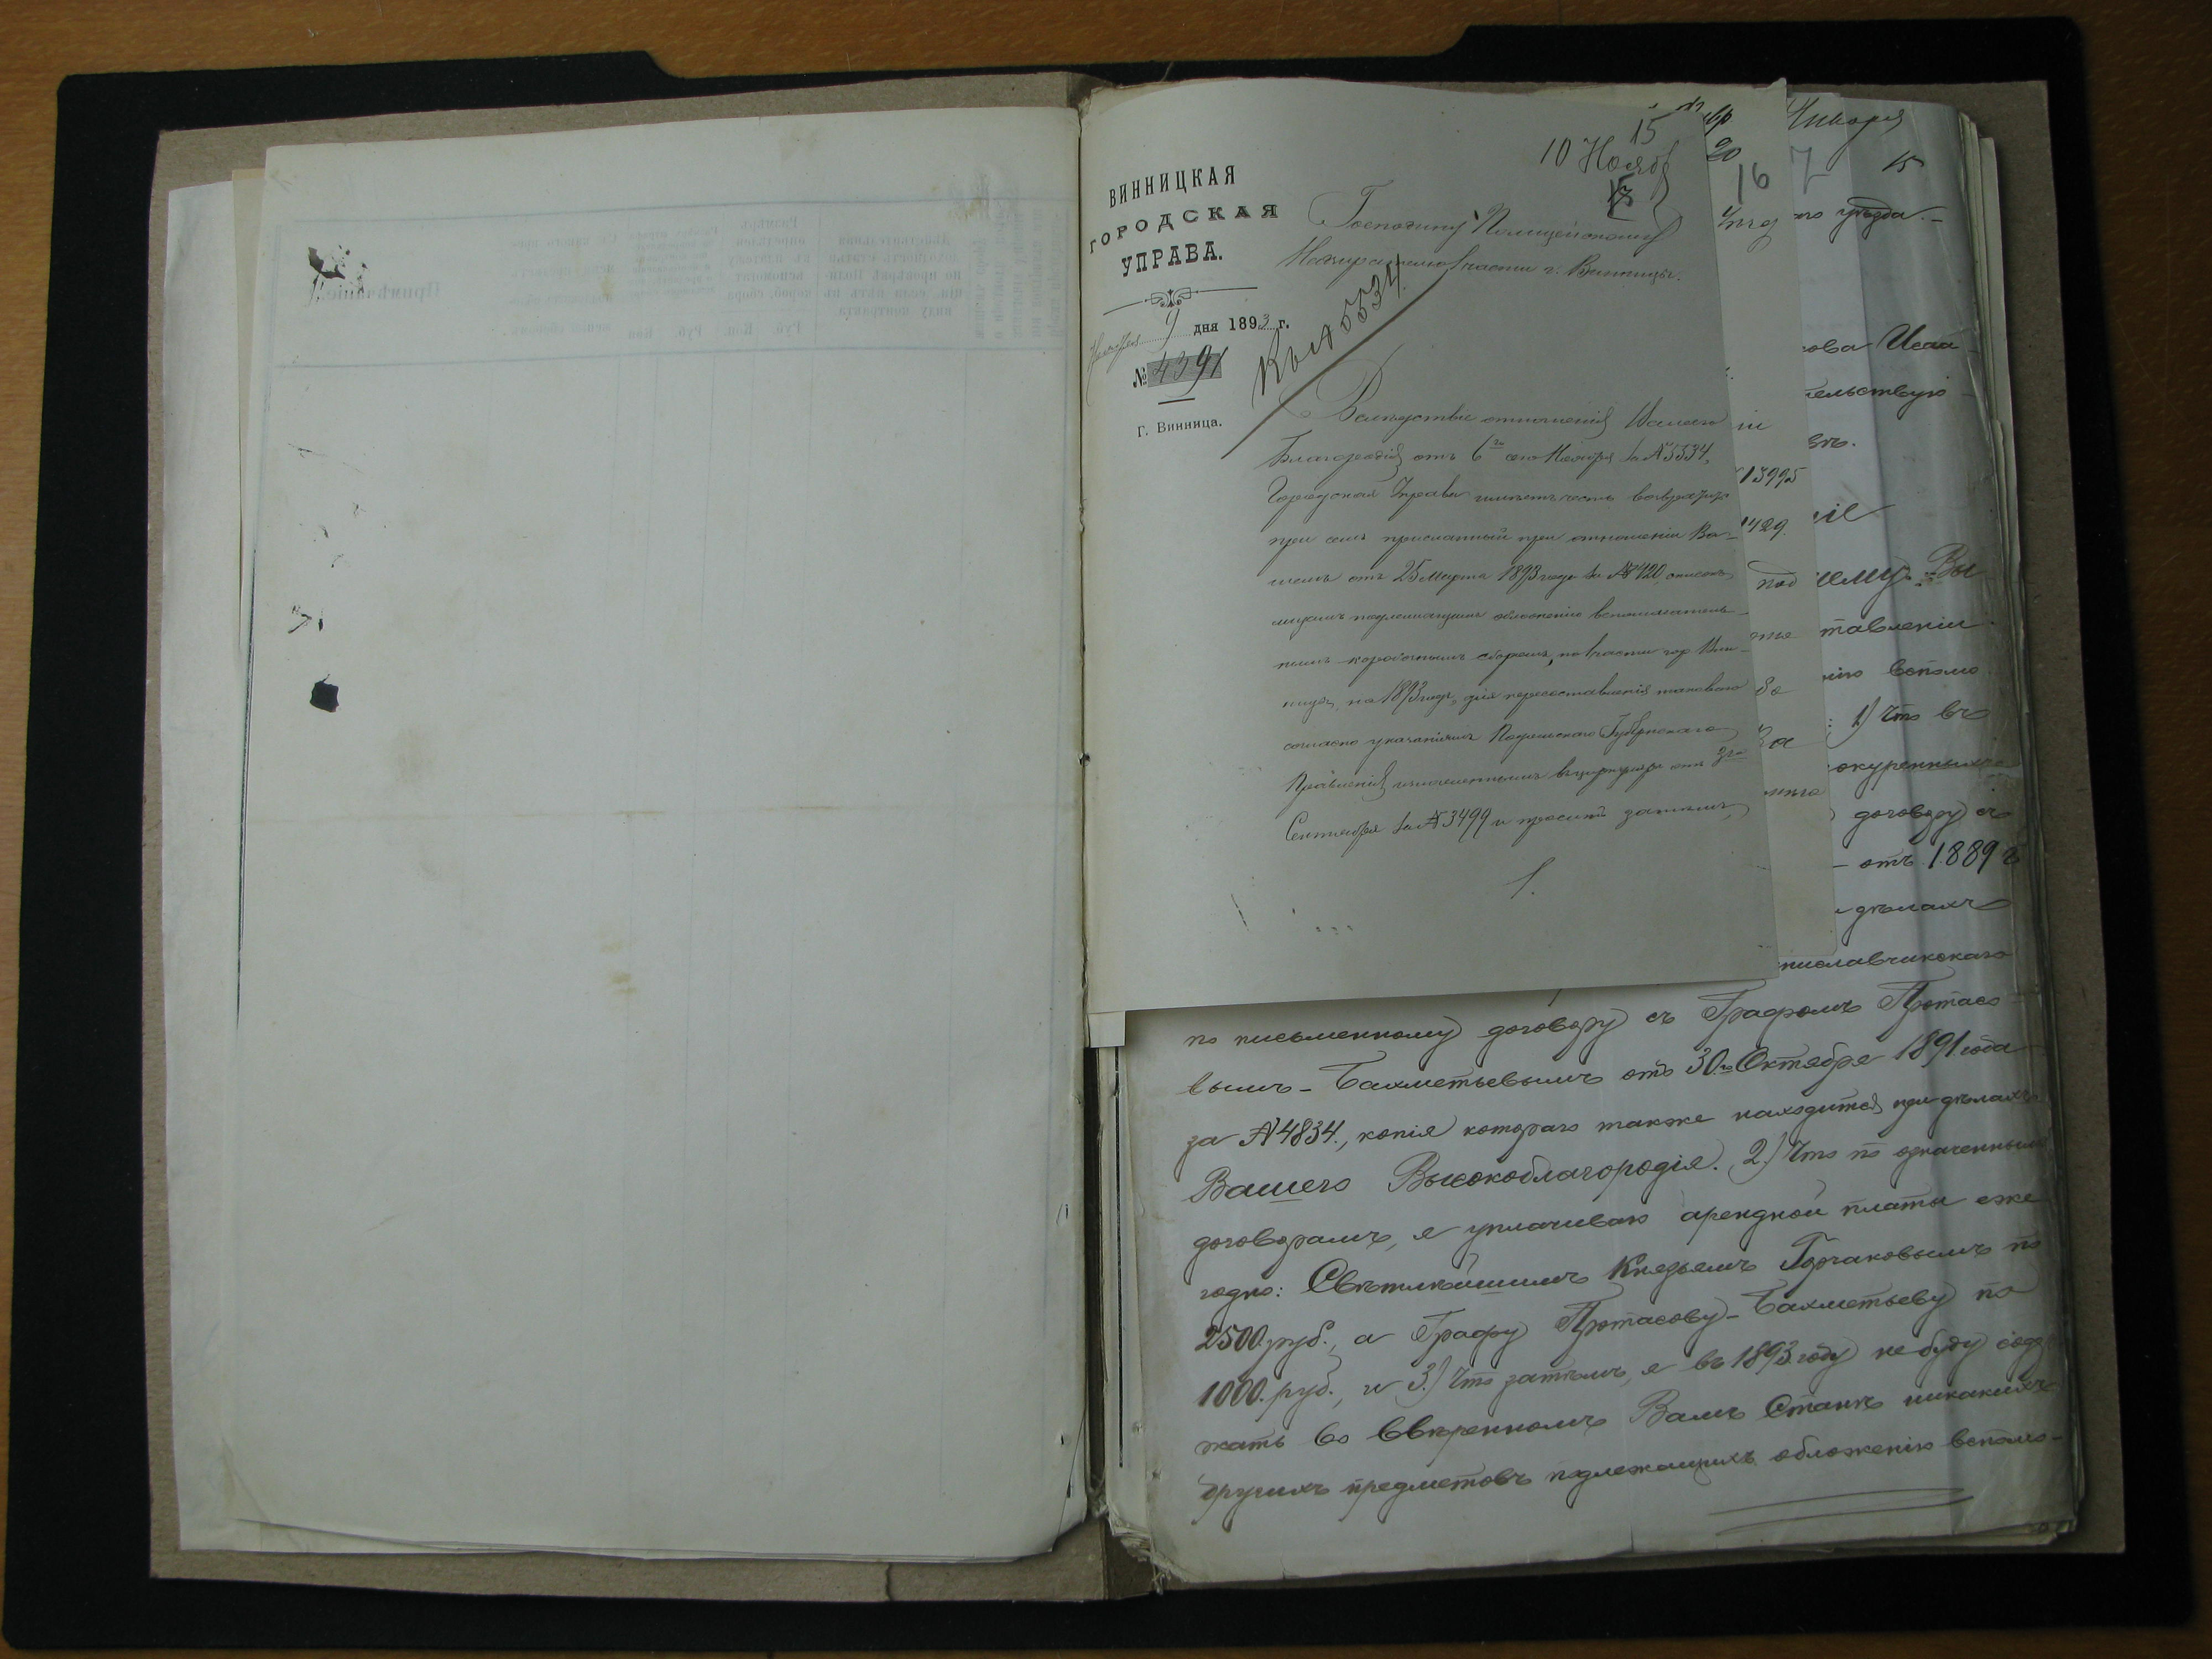 ВИННИЦКАЯ
ГОРОДСКАЯ
УПРАВА.
Ноября 9 дня 1893 г.
№ 4391
Г. Винница.
10 Нояб
15
Господину Полицейскому
Надзирателю I части г. Винницы.
Къ № 5534.
Вследствие отношенія Вашего
Благородія отъ 6го сего Ноября за № 5534,
Городская Управа имѣетъ честь возвратить
при семъ присланный при отношеніи Ва-
шемъ отъ 25 Марта 1893 года за № 1420 списокъ
лицамъ подлежащимъ обложенію вспомогатель-
нымъ коробочнымъ сборомъ, по I части гор. Вин-
ницы, на 1893 годъ, для пересоставленія таковаго
согласно указаніямъ Подольскаго Губернскаго
Правленія изложеннымъ въ циркулярѣ отъ 3го
Сентября за № 3499 и просить затемъ,
20
16
13995
1429.
под
За
7
Января
15
аго уѣзда.
кова Исаа-
тельствую
іе
нему Вы
ставленіи
нію вспомо
1) Что въ
окуренныхъ
договору съ
отъ 1889 г
дѣлахъ
ниславчикскаго
по письменному договору съ Графомъ Протасо-
вымъ-Бахметьевымъ отъ 30го Октября 1891 года
за № 4834., копія котораго также находится при дѣлахъ
Вашего Высокоблагородія. 2.) Что по означеннымъ
договорамъ, я уплачиваю арендной платы еже
годно: Свѣтлѣйшимъ Князьямъ Горчаковымъ по
2500 руб., а Графу Протасову-Бахметьеву по
1000. руб., и 3.) Что затѣмъ, я въ 1893 году не буду содер
жать во ввѣренномъ Вамъ Станѣ никакихъ
другихъ предметовъ подлежащихъ обложенію вспомо-